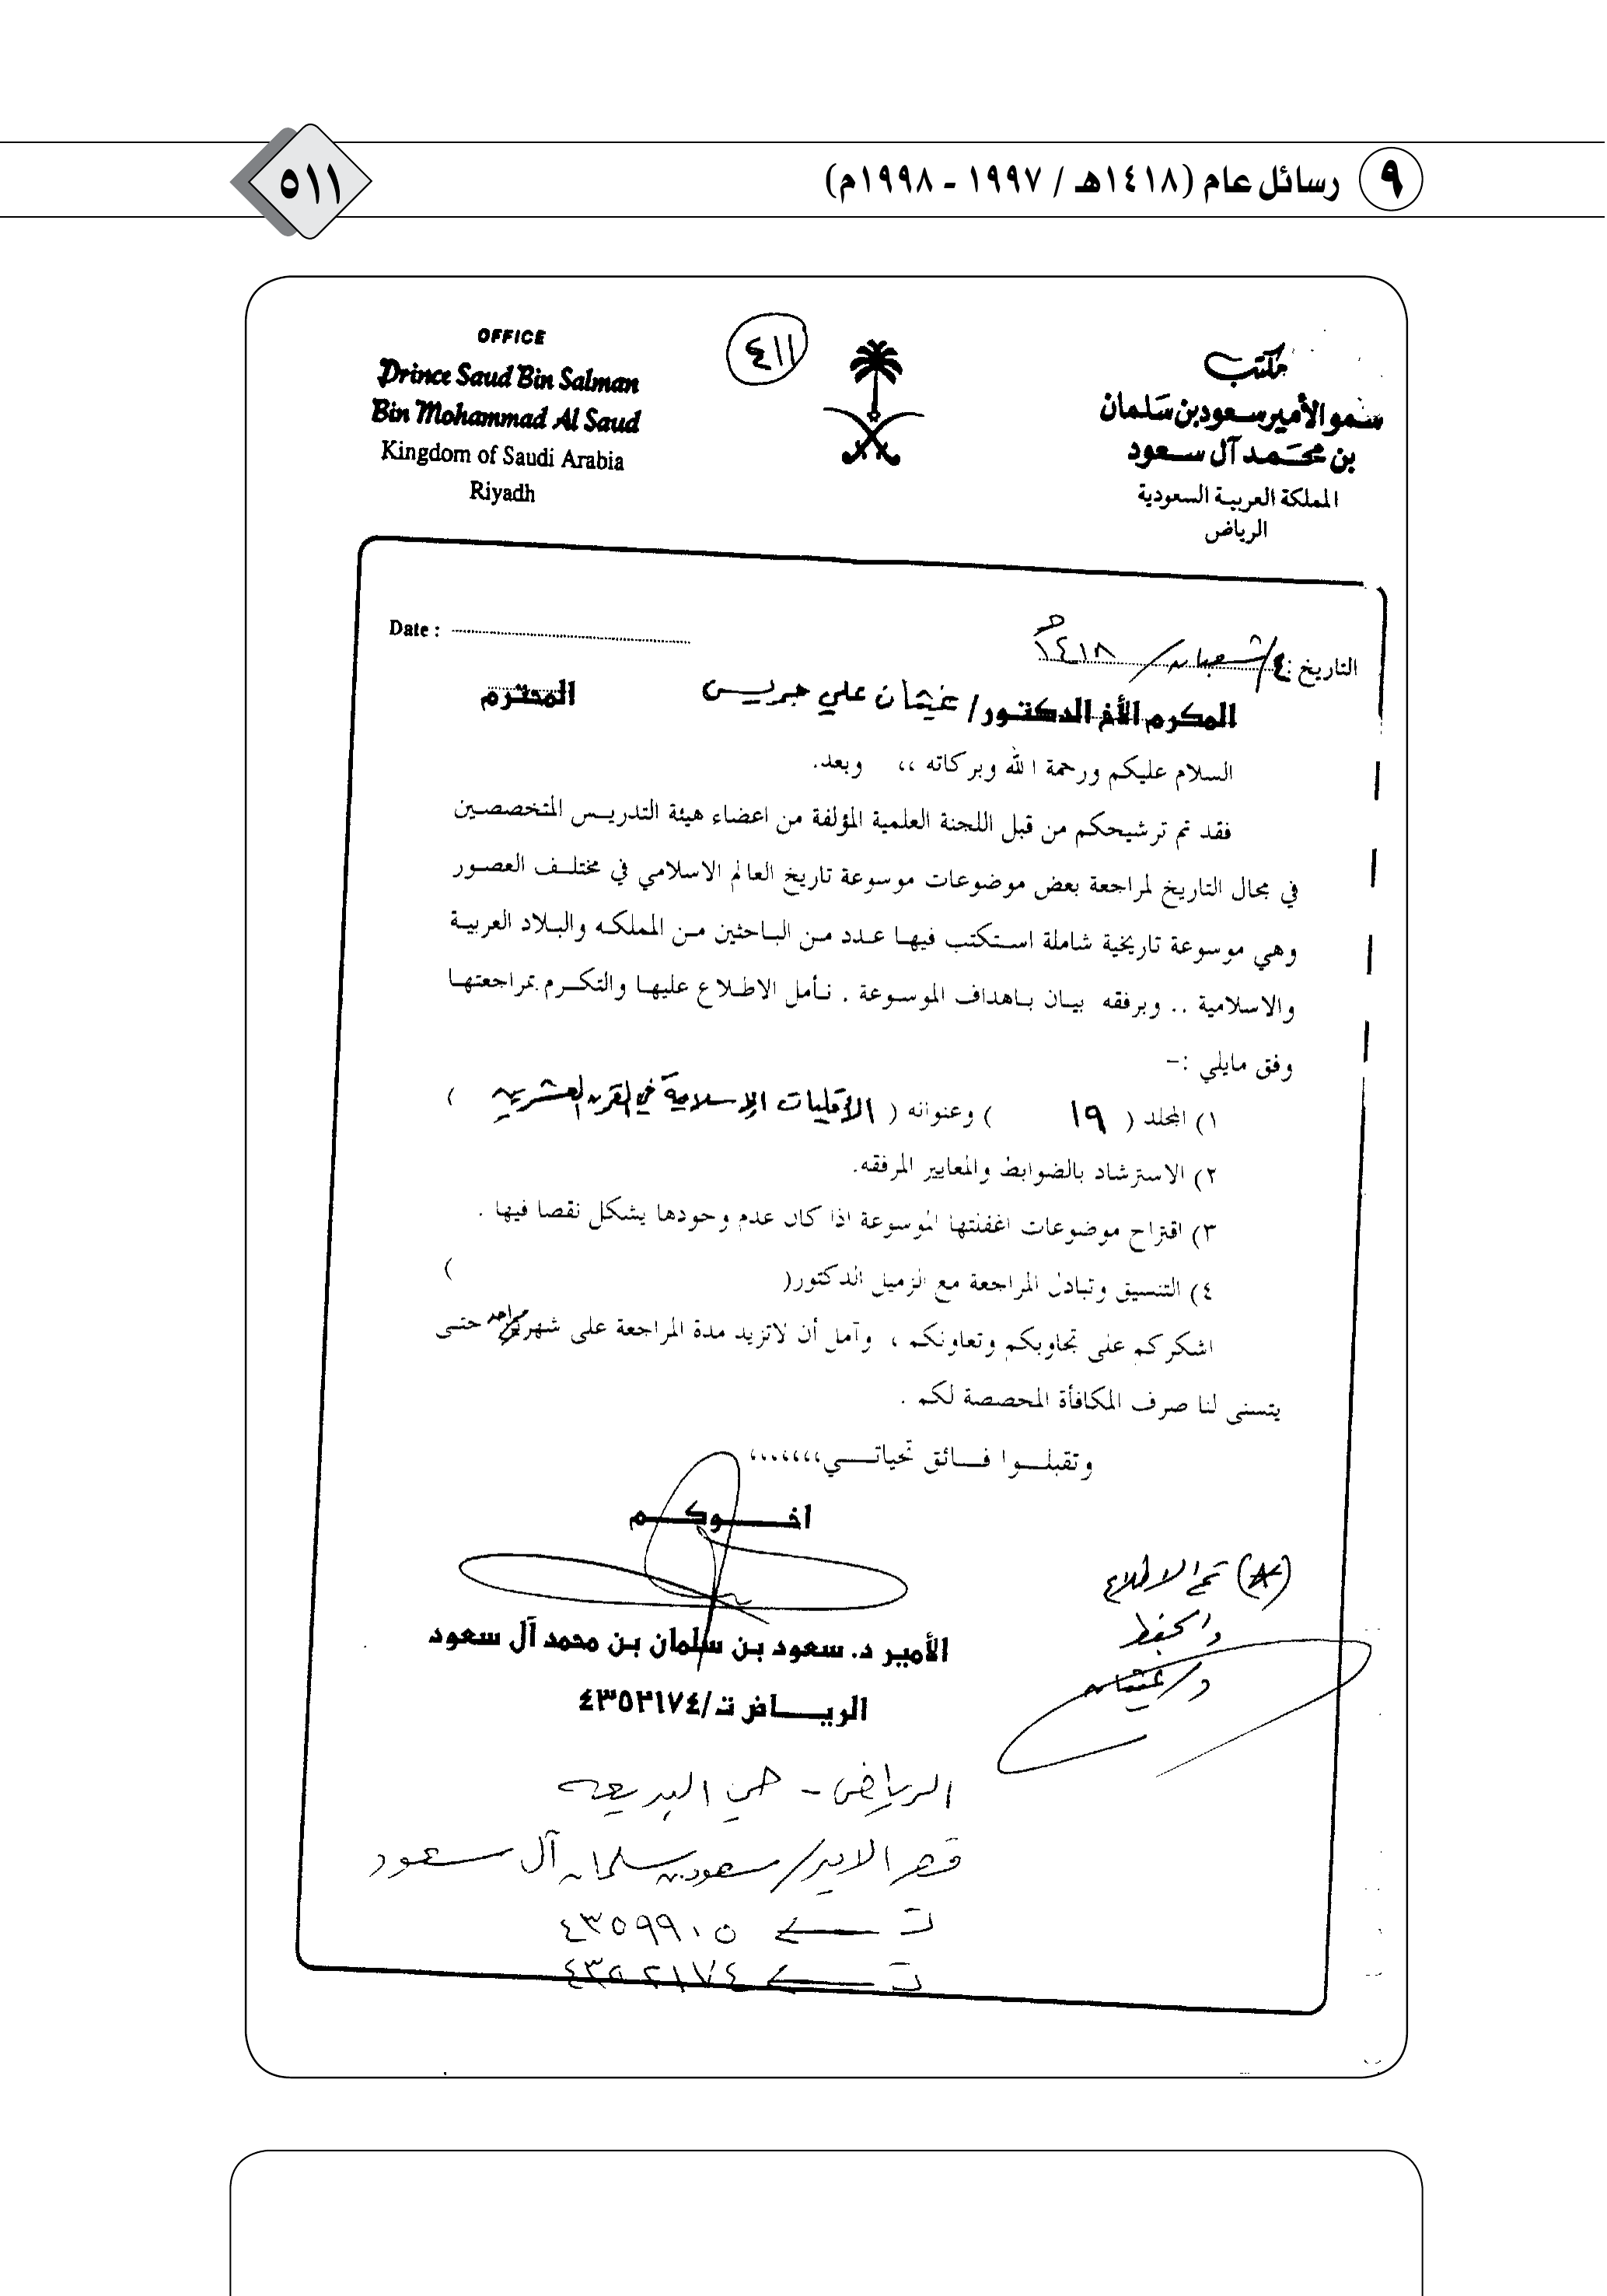 ٩ رسائل عام (١٤١٨هـ / ١٩٩٧ - ١٩٩٨م)
٥١١
مكتب
سمو الأمير سعود بن سلمان
بن محمد آل سعود
المملكة العربية السعودية
الرياض
٤١١
OFFICE
Prince Saud Bin Salman
Bin Mohammad Al Saud
Kingdom of Saudi Arabia
Riyadh
التاريخ : ٤/شعبان/١٤١٨هـ
Date :
المكرم الأخ الدكتور/ غيثان علي جريس المحترم
السلام عليكم ورحمة الله وبركاته ،، وبعد.
فقد تم ترشيحكم من قبل اللجنة العلمية المؤلفة من اعضاء هيئة التدريس المتخصصين
في مجال التاريخ لمراجعة بعض موضوعات موسوعة تاريخ العالم الاسلامي في مختلف العصور
وهي موسوعة تاريخية شاملة استكتب فيها عدد من الباحثين من المملكه والبلاد العربية
والاسلامية .. وبرفقه بيان باهداف الموسوعة . نأمل الاطلاع عليها والتكرم بمراجعتها
وفق مايلي :-
١) المجلد ( ١٩ ) وعنوانه ( الأقليات الإسلامية في القرن العشرين )
٢) الاسترشاد بالضوابط والمعايير المرفقه.
٣) اقتراح موضوعات اغفلتها الموسوعة اذا كان عدم وجودها يشكل نقصا فيها .
٤) التنسيق وتبادل المراجعة مع الزميل الدكتور( )
اشكركم على تجاوبكم وتعاونكم ، وآمل أن لاتزيد مدة المراجعة على شهرين حتى
يتسنى لنا صرف المكافأة المخصصة لكم .
وتقبلوا فائق تحياتي،،،،،،،
اخوكم
الأمير د. سعود بن سلمان بن محمد آل سعود
الرياض ت/٤٣٥٢١٧٤
(*) تم الاطلاع
والحفظ
د/ غيثان
الرياض - حي البديعه
قصر الامير/ سعود بن سلمان آل سعود
ت ← ٤٣٥٩٩٠٥
ت ← ٤٣٥٢١٧٤